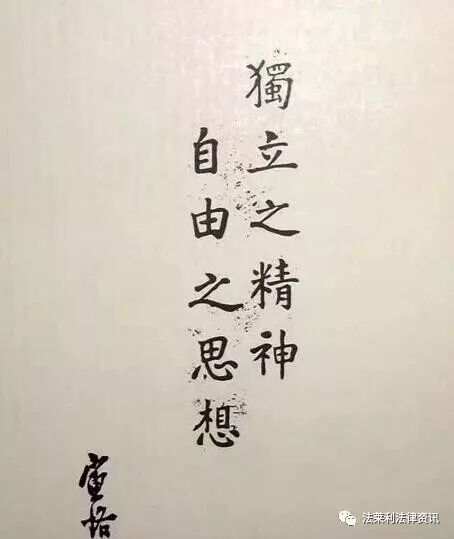 獨立之精神
自由之思想
寅恪
法莱利法律资讯